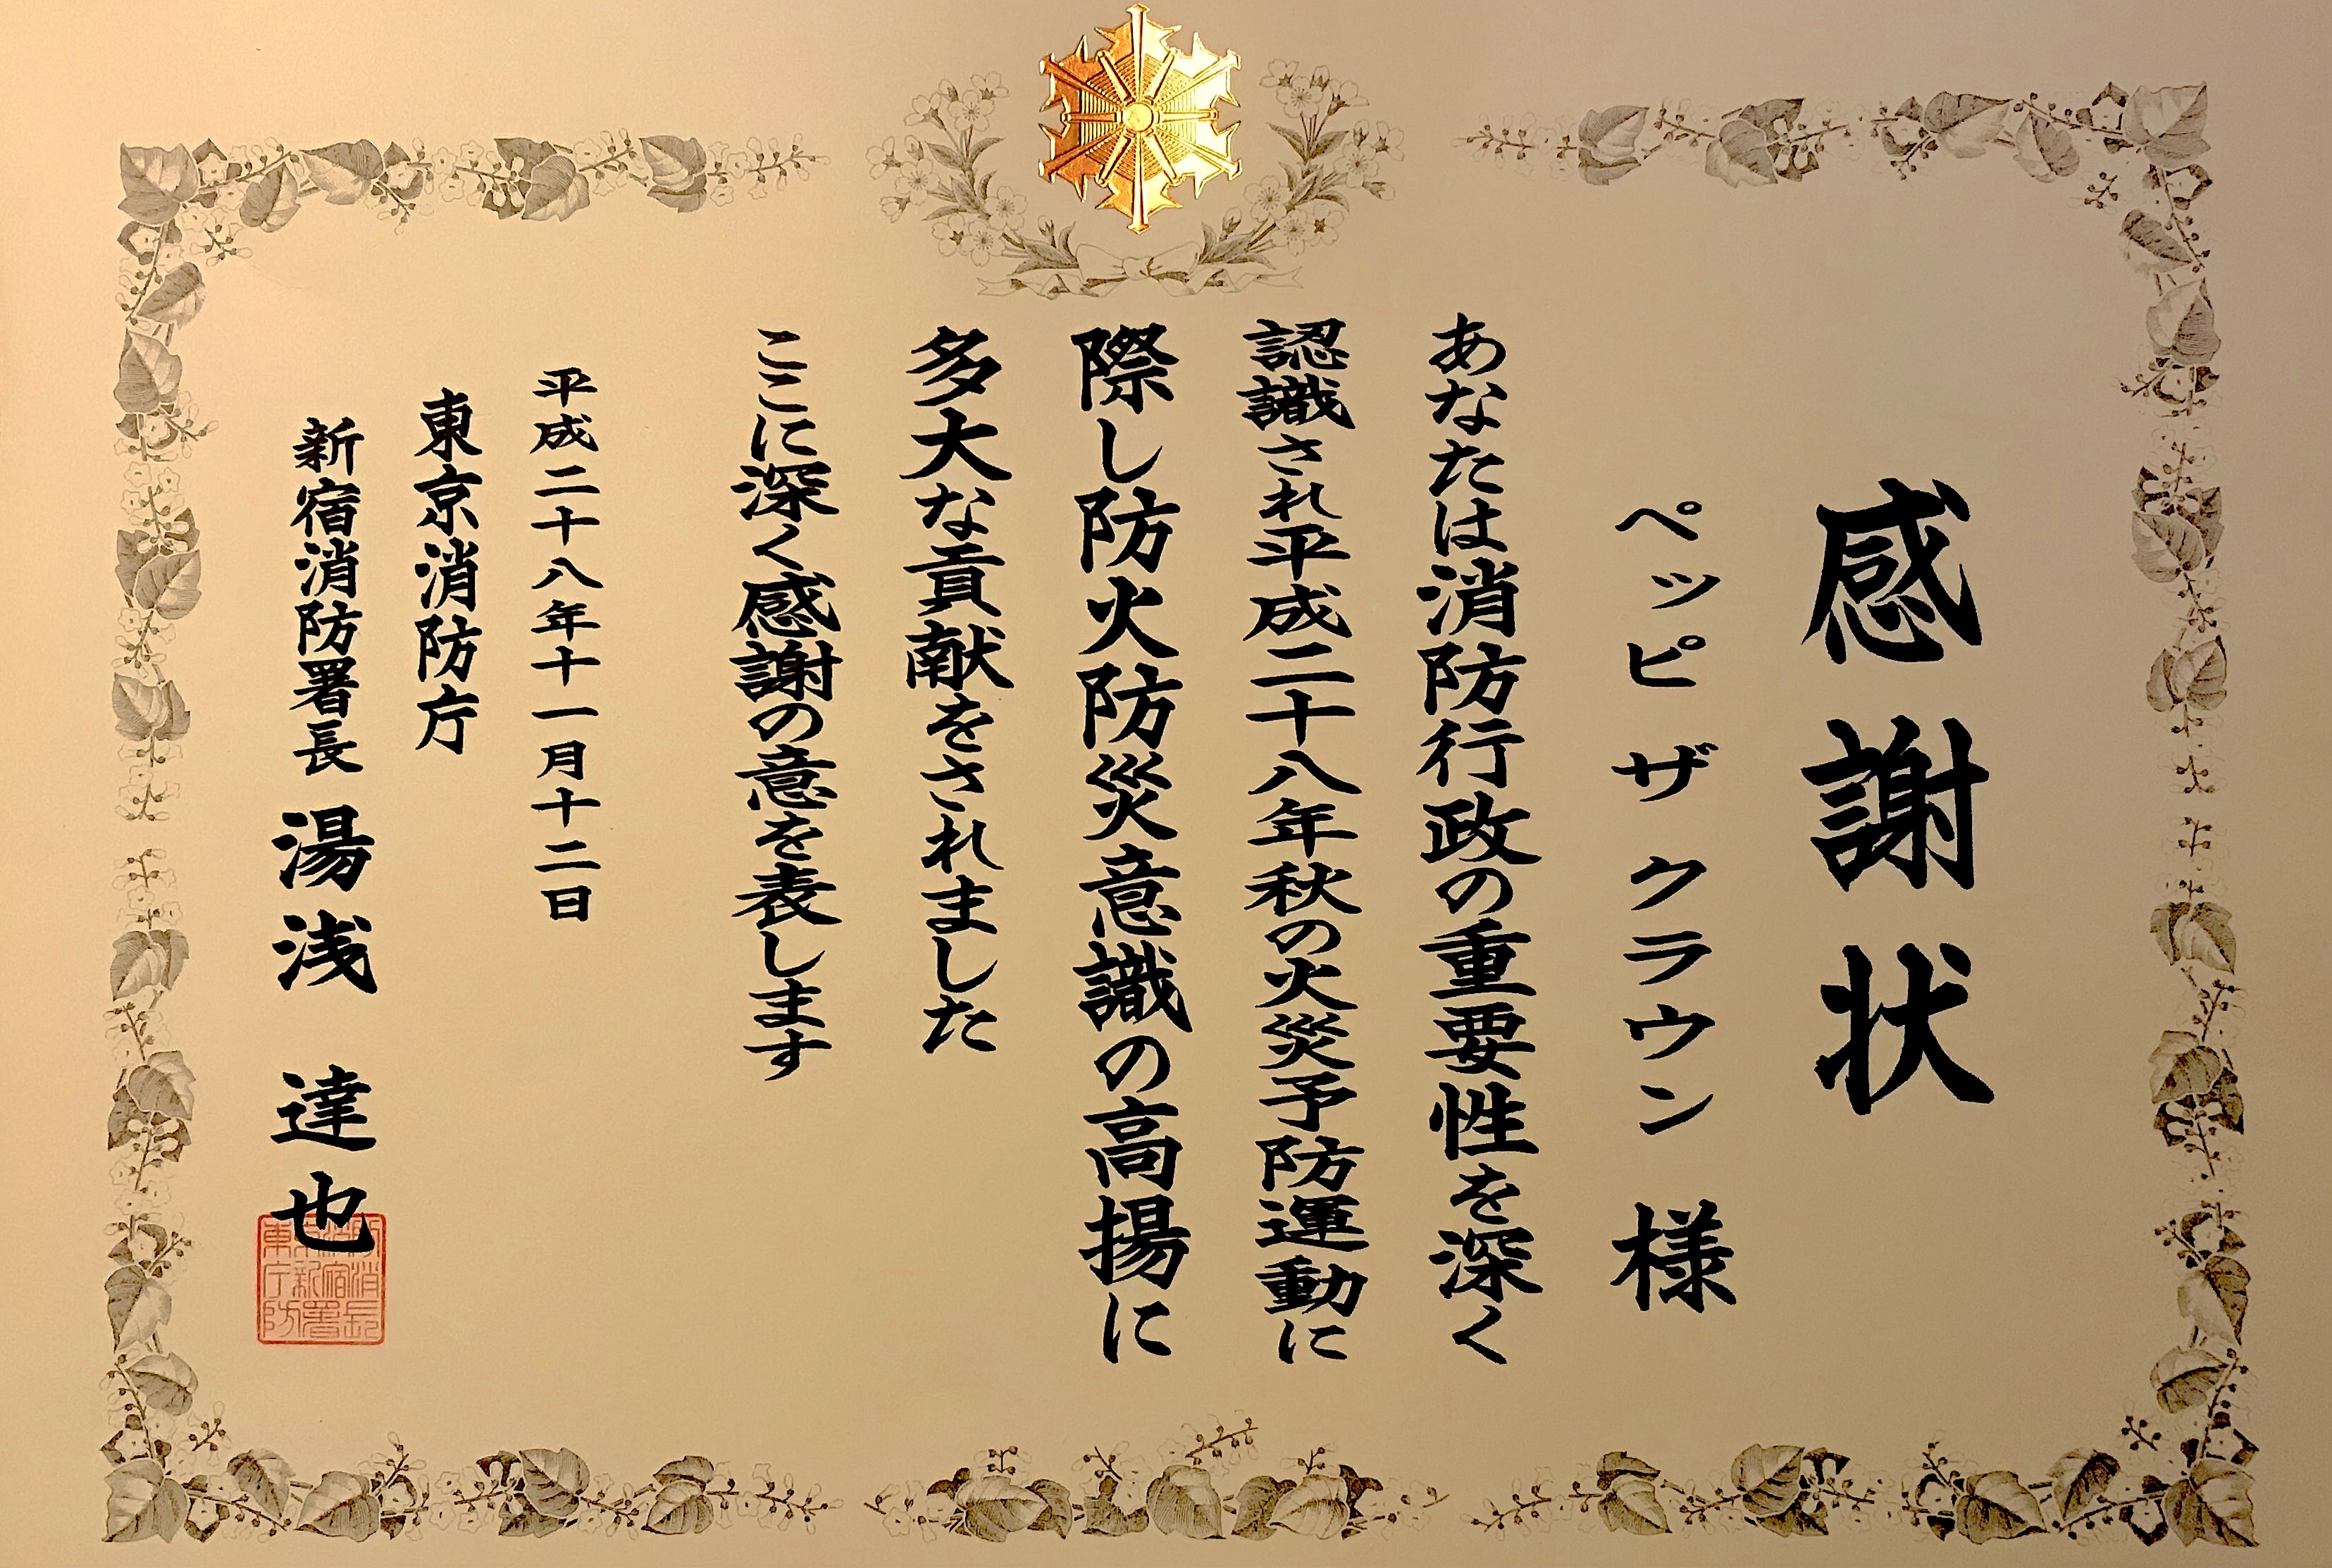 感謝状
ペッピザクラウン 様
あなたは消防行政の重要性を深く
認識され平成二十八年秋の火災予防運動に
際し防火防災意識の高揚に
多大な貢献をされました
ここに深く感謝の意を表します
平成二十八年十一月十二日
東京消防庁
新宿消防署長 湯浅 達也